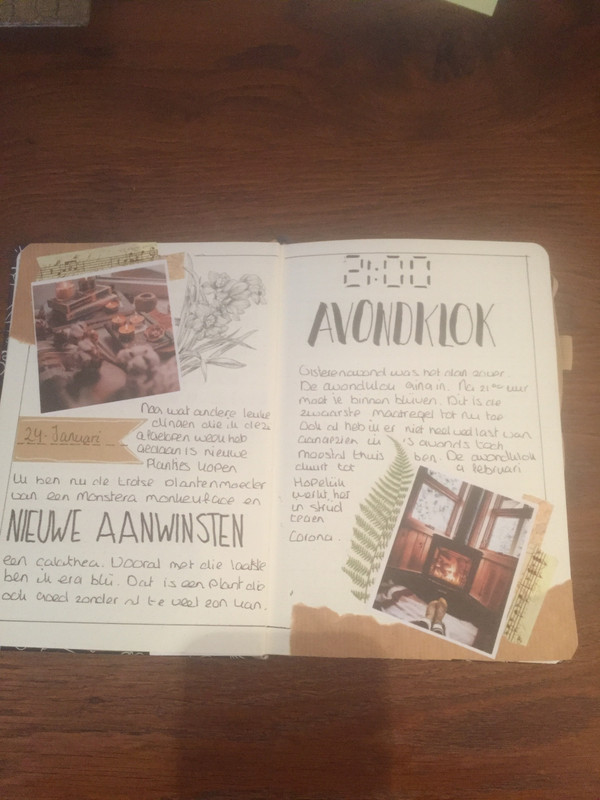 24 - Januari
Nog wat andere leuke
dingen die ik deze
afgelopen week heb
gedaan is nieuwe
Plantjes kopen
Ik ben nu de trotse plantenmoeder
van een Monstera monkeyface en
NIEUWE AANWINSTEN
een calathea. Vooral met die laatste
ben ik erg blij. Dat is een plant die
ook goed zonder al te veel zon kan.
21:00
AVONDKLOK
Gisterenavond was het dan zover
De avondklok ging in. Na 21:00 uur
moet je binnen blijven. Dit is de
zwaarste maatregel tot nu toe
Ook al heb ik er niet heel veel last van
aangezien ik 's avonds toch
meestal thuis ben. De avondklok
duurt tot 9 februari
Hopelijk
werkt het
in strijd
tegen
Corona.